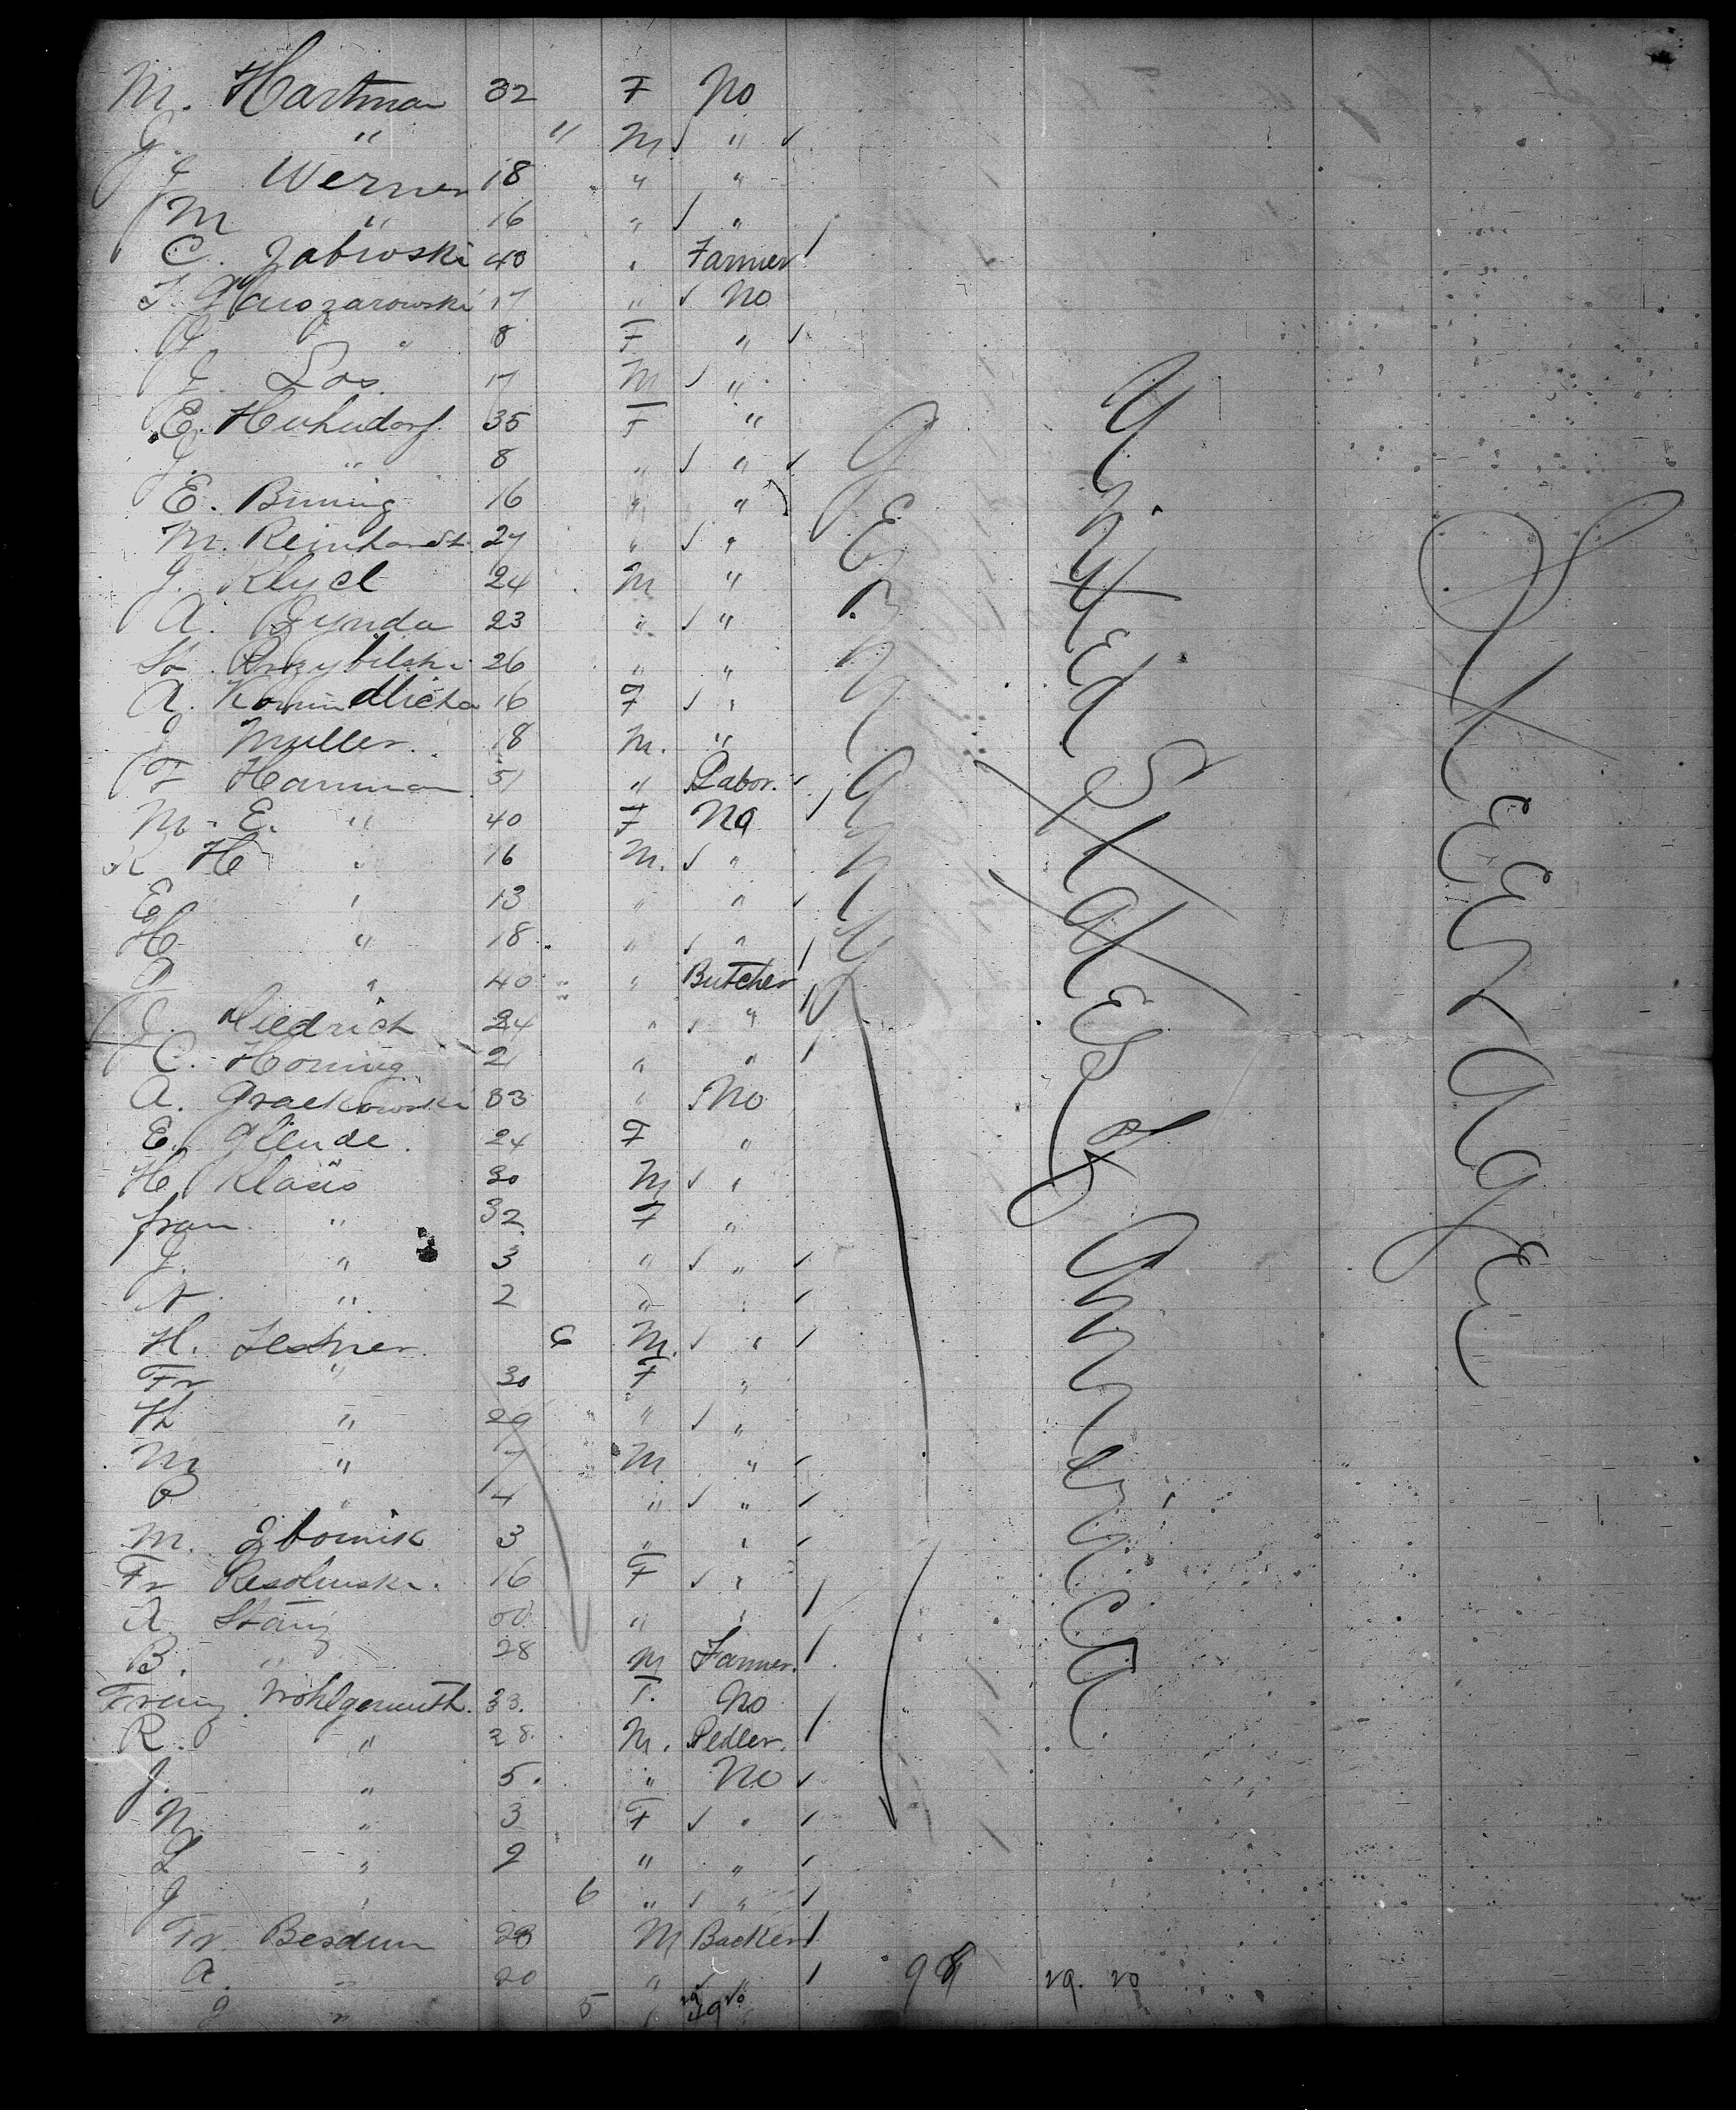 M. Hartman 32 F No
J. " " M "
J Werner 18 " "
M " 16 " "
C. Zabwoski 43 " Farmer
J. 17 " No
J " 8 F "
J Los 17 M "
E. Huhndorf 35 F "
J. " 8 " "
E. Bruning 16 " "
M. Reinhardt 27 " "
J. Klycl 24 M "
A. Gynda 23 " "
St. Przybilski 26 " "
A. 16 F "
J Muller 18 M. "
F Hamman 51 " Labor.
M. E. " 40 F No
R H " 16 M. "
E " 13 " "
H " 18 " "
" 40 " Butcher
J. Diedrich 24 " "
C. Horning 21 " "
A. Graekowski 33 " No
E. Glende 24 F "
H Klasis 30 M "
frau " 32 F "
J. " 3 " "
" 2 " "
H. Lestner 6 M. "
Fr " 30 F "
H " 29 " "
M " 7 M "
P " 4 " "
M. Zbornik 3 " "
Fr Resolinski 16 F "
A Stanz " "
B. " 28 M Farmer.
Wohlgemuth. 33. F. No
R. " 28. M. Pedler.
J. " 5. " No
N " 3 F "
L " 2 " "
J " 6 " "
Fr. Besdum 28 M Backer
A. " 20 " "
J " 5 "
Germany
United States of America
Steerage
98 29. 20